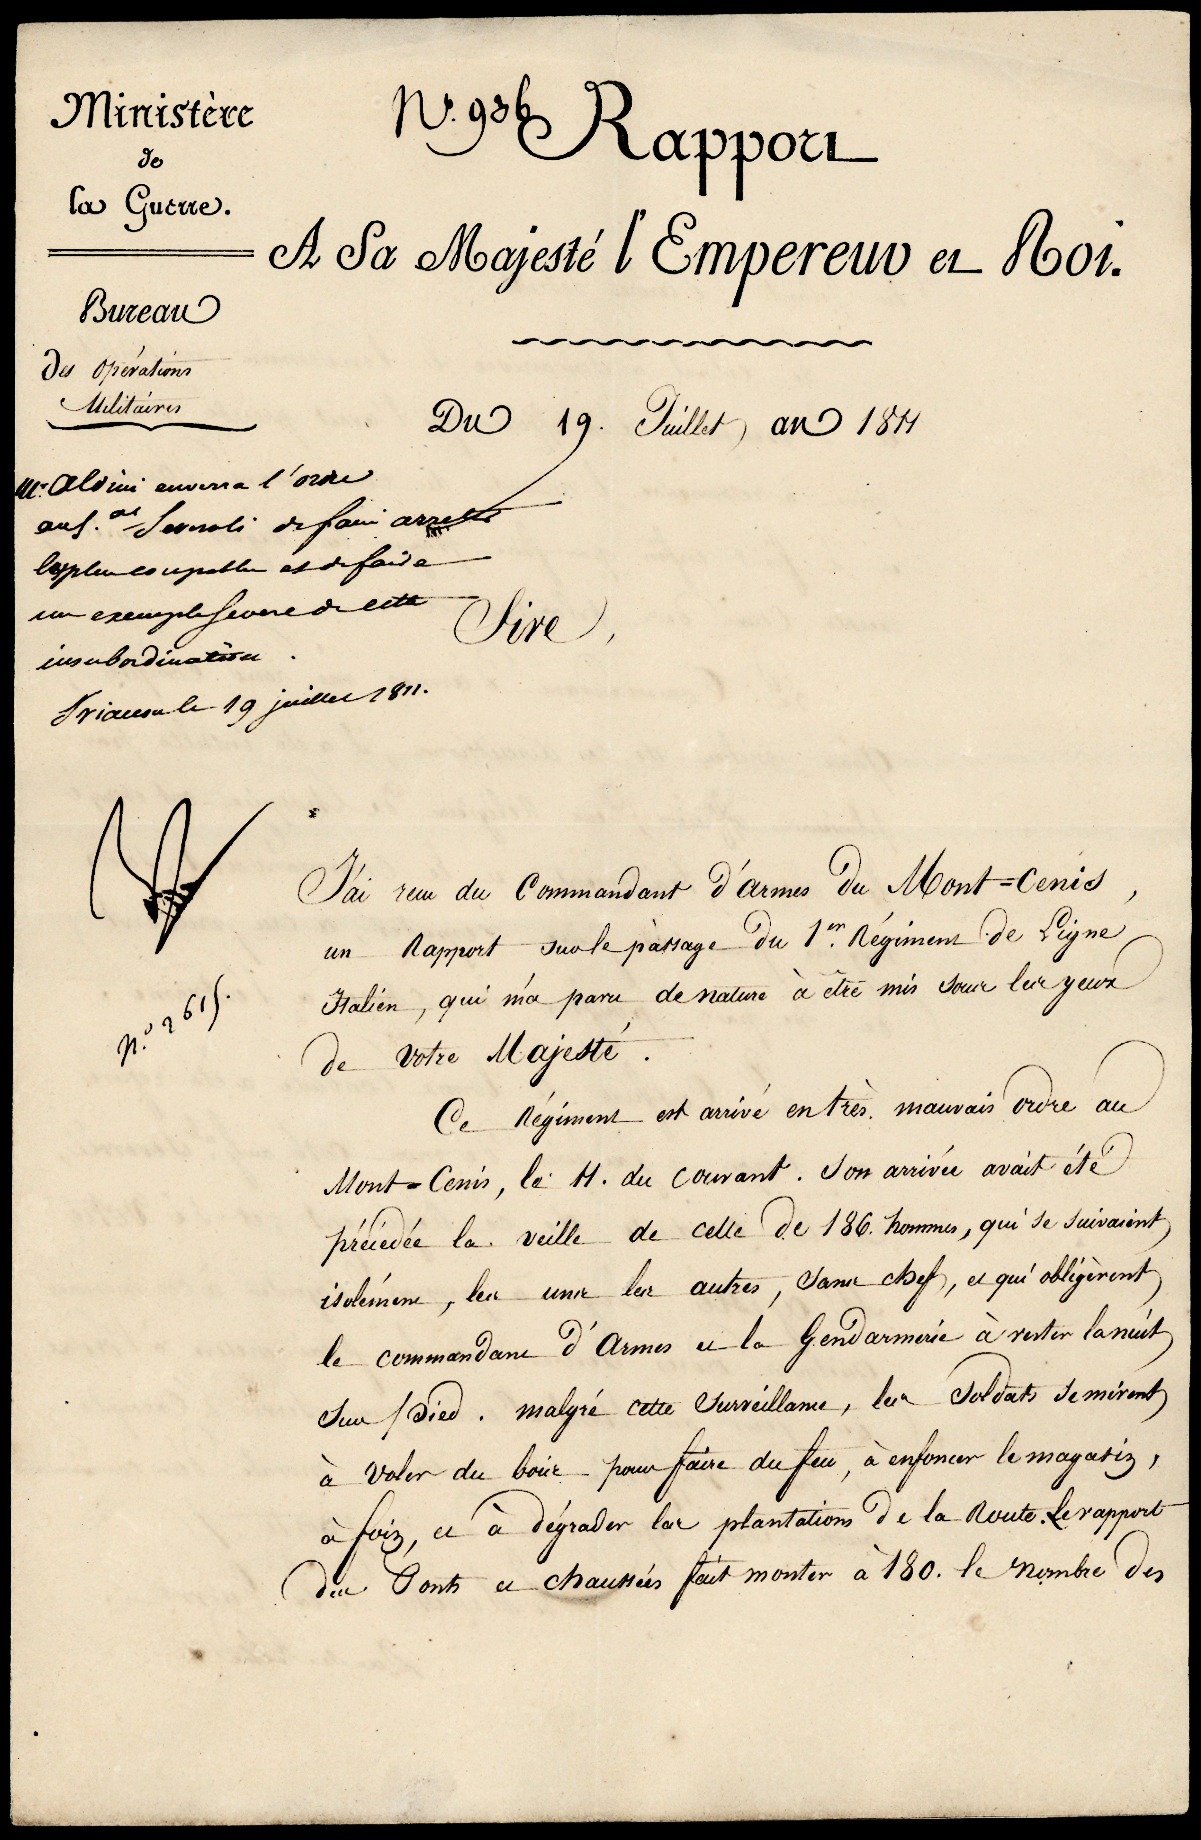 Ministère
de
la Guerre.
Bureau
des opérations
Militaires
N.° 936
Rapport
A Sa Majesté l'Empereur et Roi.
Du 19. Juillet an 1811
Mr. Aldini enverra l'ordre
au G.al Severoli de faire arrêter
les plus coupables et de faire
un exemple severe de cette
insubordination.
Trianon le 19 juillet 1811.
N.° 2615.
Sire,
J'ai reçu du Commandant d'armes du Mont=Cenis,
un Rapport sur le passage du 1.er Régiment de Ligne
Italien, qui m'a paru de nature à être mis sous les yeux
de Votre Majesté.
Ce Régiment est arrivé en très mauvais ordre au
Mont=Cenis, le 11. du courant. Son arrivée avait été
précédée la veille de celle de 186. hommes, qui se suivaient
isolément, les uns les autres, sans chef, et qui obligèrent
le commandant d'Armes et la Gendarmerie à rester la nuit
sur pied. malgré cette surveillance, les soldats se mirent
à voler du bois pour faire du feu, à enfoncer le magasin,
à foin, et à dégrader les plantations de la Route. Le rapport
des Ponts et chaussées fait monter à 180. le nombre des